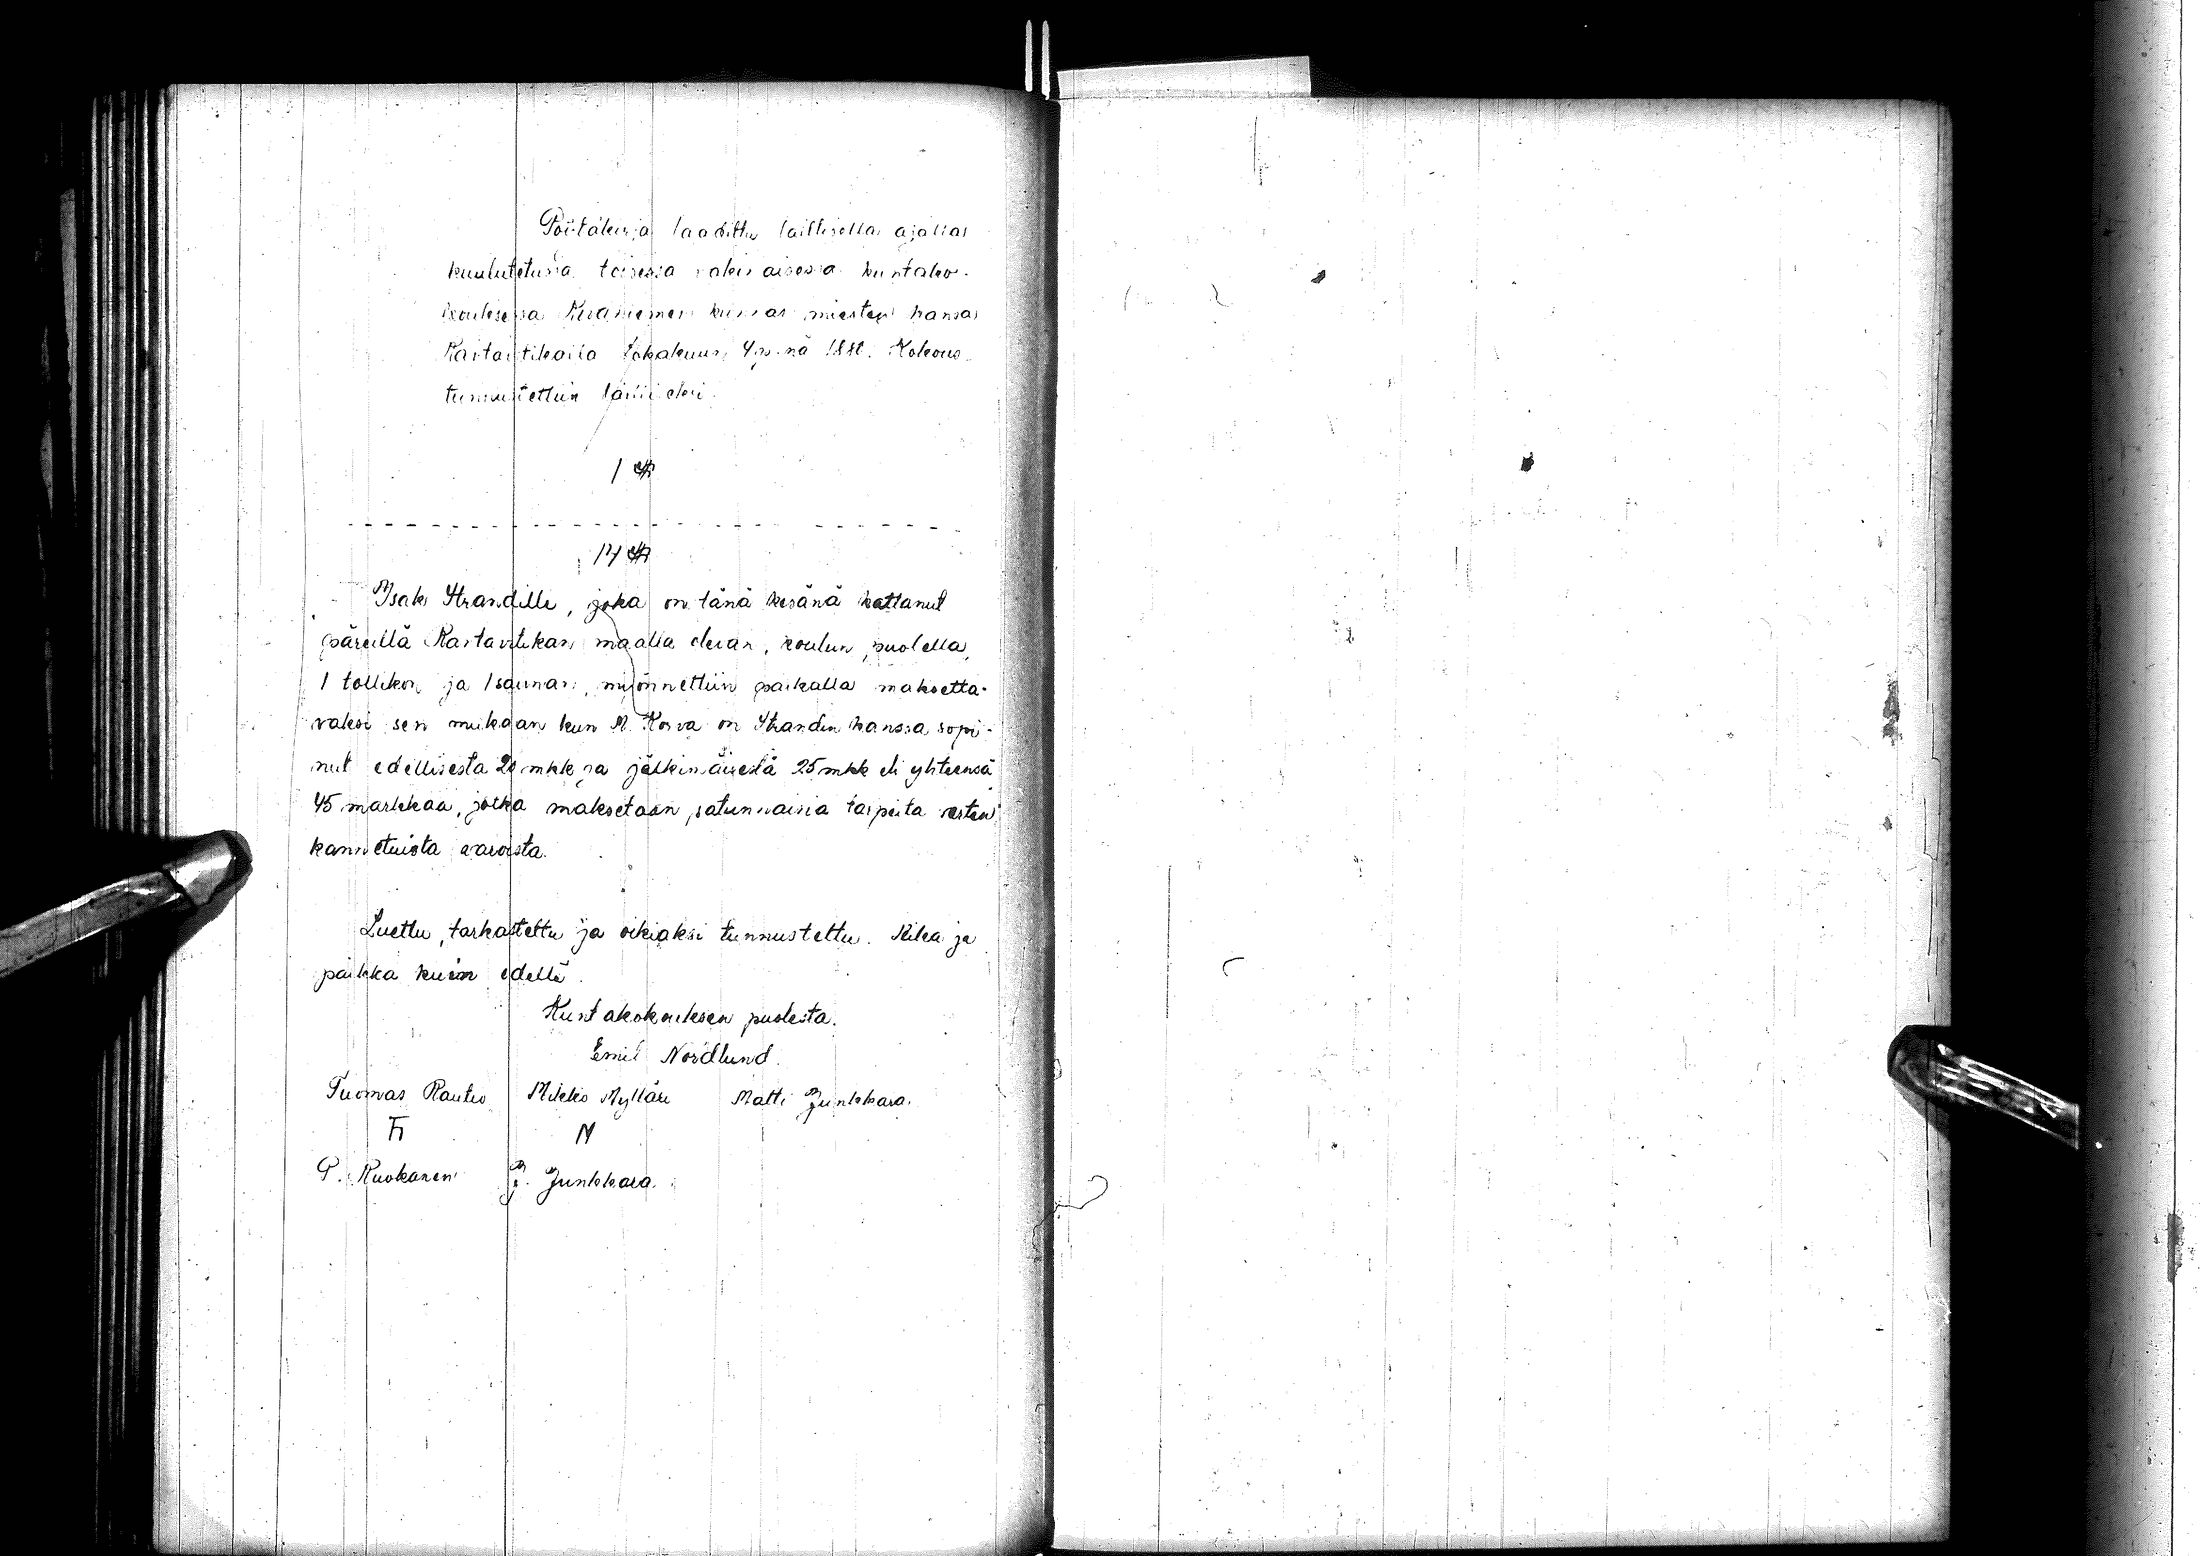 Pöytäkirja laadittu laillisella ajalla
kuulutetussa toisessa vakinaisessa kuntako-
kouksessa Kivaniemen kunnan miesten kanssa
Rastautikalla lokakuun 4 p:nä 1880. Kokous
tunnustettiin lailliseksi.
1 §
14 §
Isak Strandille, joka on tänä kesänä kattanut
päreillä Rastautikan maalla olevan, koulun puolella,
1 tollikon ja 1 saunan, myönnettiin paikalla maksetta-
vaksi sen mukaan kun M. Korva on Strandin kanssa sopi-
nut edellisestä 20 mkk ja jälkimäisestä 25 mkk eli yhteensä
45 markkaa, jotka maksetaan satunnaisia tarpeita varten
kannetuista varoista.
Luettu, tarkastettu ja oikiaksi tunnustettu. Aika ja
paikka kuin edellä.
Kuntakokouksen puolesta.
Emil Nordlund.
Tuomas Rautio Mikko Mylläri Matti Junkkara.
P. Ruokanen J. Junkkara.